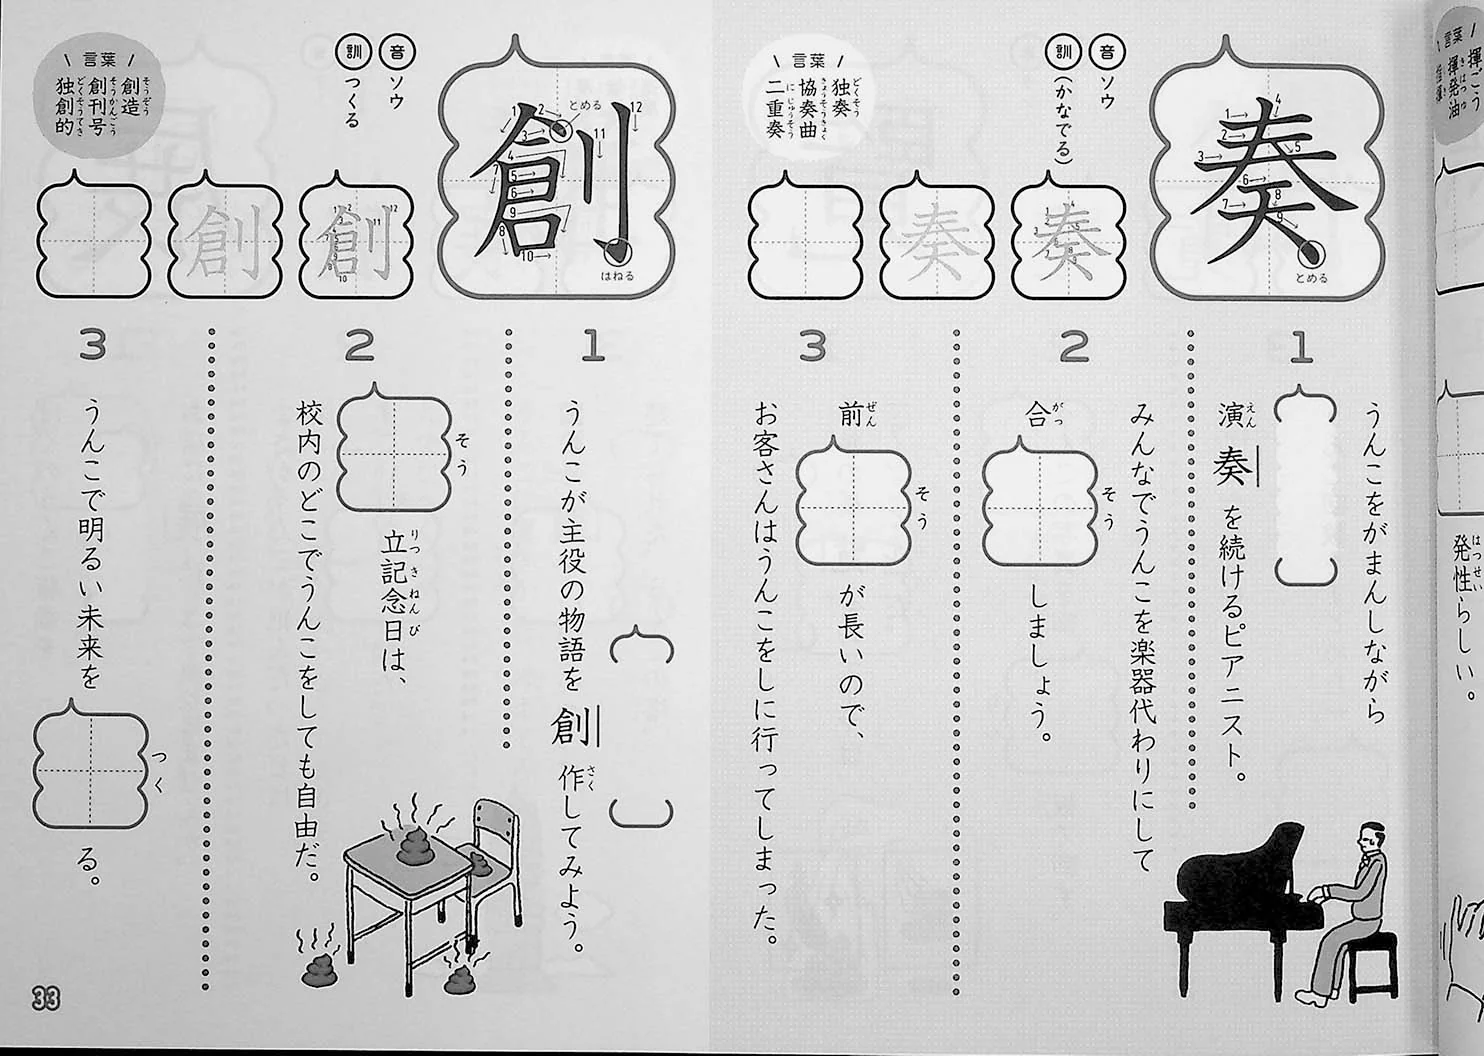 揮
発油
発性らしい。
はつせい
奏
とめる
音 ソウ
訓 (かなでる)
言葉
独奏
どくそう
協奏曲
きょうそうきょく
二重奏
にじゅうそう
1
うんこをがまんしながら
演奏を続けるピアニスト。
えん
2
みんなでうんこを楽器代わりにして
合 しましょう。
がっ そう
3
前 が長いので、
ぜん そう
お客さんはうんこをしに行ってしまった。
創
とめる
はねる
音 ソウ
訓 つくる
言葉
創造
そうぞう
創刊号
そうかんごう
独創的
どくそうてき
1
うんこが主役の物語を創作してみよう。
さく
2
立記念日は、
そう りつ きねんび
校内のどこでうんこをしても自由だ。
3
うんこで明るい未来を る。
つく
33